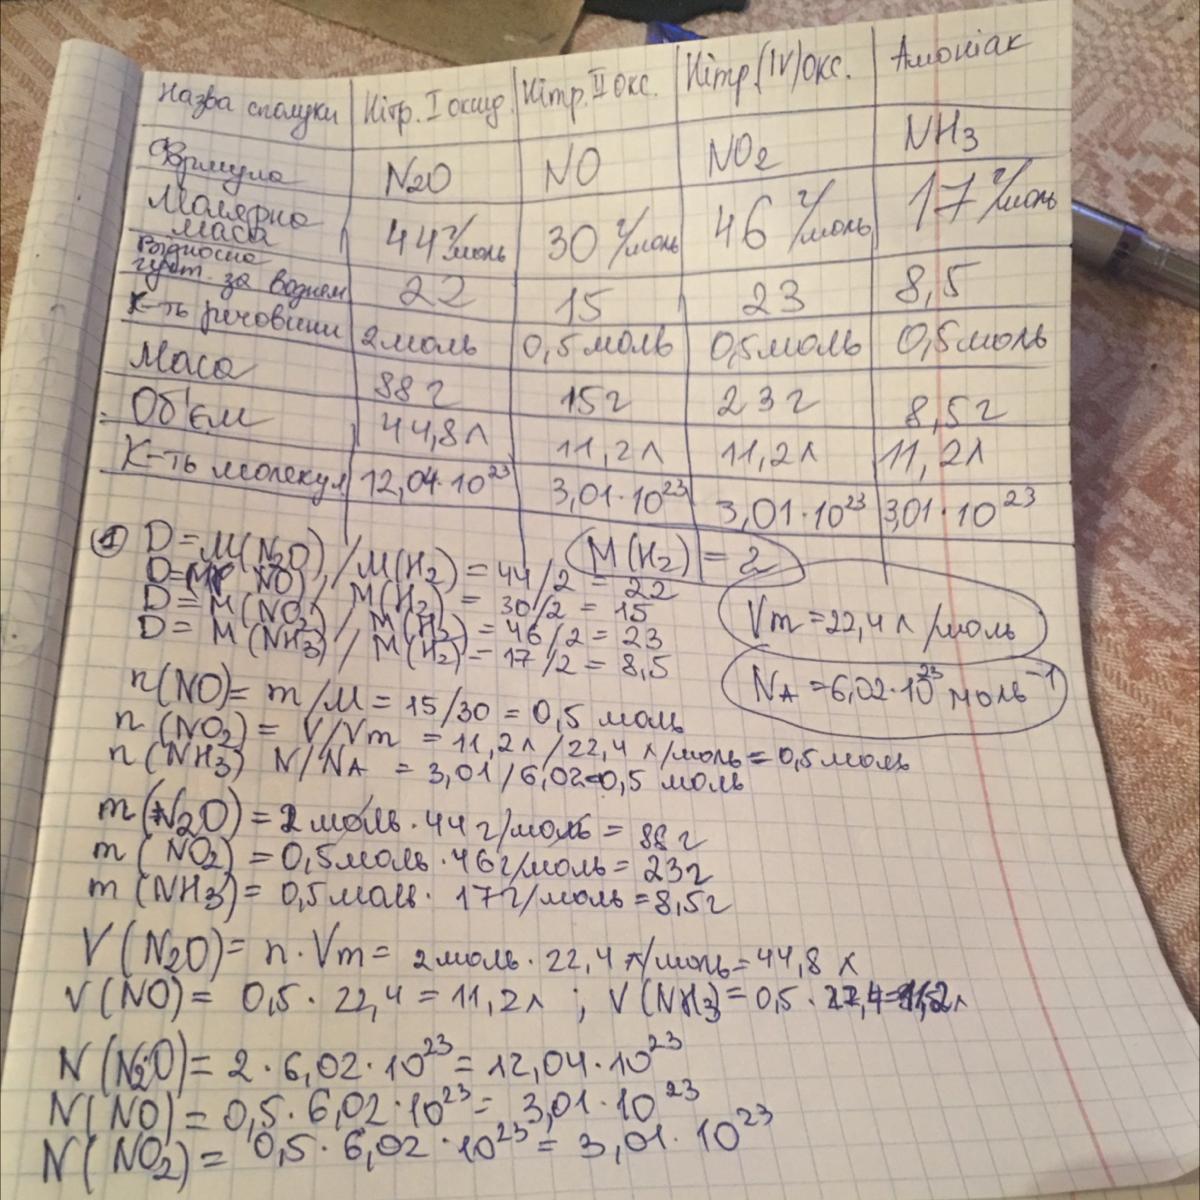 Назва сполуки Нітр. I оксид. Нітр. II окс. Нітр. (IV) окс. Амоніак
Формула N2O NO NO2 NH3
Молярна маса 44 г/моль 30 г/моль 46 г/моль 17 г/моль
Відносна густ. за воднем 22 15 23 8,5
К-ть речовини 2 моль 0,5 моль 0,5 моль 0,5 моль
Маса 88 г 15 г 23 г 8,5 г
Об'єм 44,8 л 11,2 л 11,2 л 11,2 л
К-ть молекул 12,04·10²³ 3,01·10²³ 3,01·10²³ 3,01·10²³
① D = M(N2O) / M(H2) = 44/2 = 22
M(H2) = 2
D = M(NO) / M(H2) = 30/2 = 15
D = M(NO2) / M(H2) = 46/2 = 23
D = M(NH3) / M(H2) = 17/2 = 8,5
Vm = 22,4 л/моль
NA = 6,02·10²³ моль⁻¹
n(NO) = m/M = 15/30 = 0,5 моль
n(NO2) = V/Vm = 11,2 л/22,4 л/моль = 0,5 моль
n(NH3) N/NA = 3,01/6,02=0,5 моль
m(N2O) = 2 моль · 44 г/моль = 88 г
m(NO2) = 0,5 моль · 46 г/моль = 23 г
m(NH3) = 0,5 моль · 17 г/моль = 8,5 г
V(N2O) = n · Vm = 2 моль · 22,4 л/моль = 44,8 л
V(NO) = 0,5 · 22,4 = 11,2 л ; V(NH3) = 0,5 · 22,4 = 11,2 л
N(N2O) = 2 · 6,02 · 10²³ = 12,04 · 10²³
N(NO) = 0,5 · 6,02 · 10²³ = 3,01 · 10²³
N(NO2) = 0,5 · 6,02 · 10²³ = 3,01 · 10²³